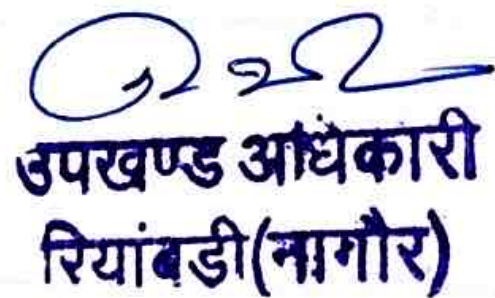 उपखण्ड अधिकारी
रियांबडी(नागौर)